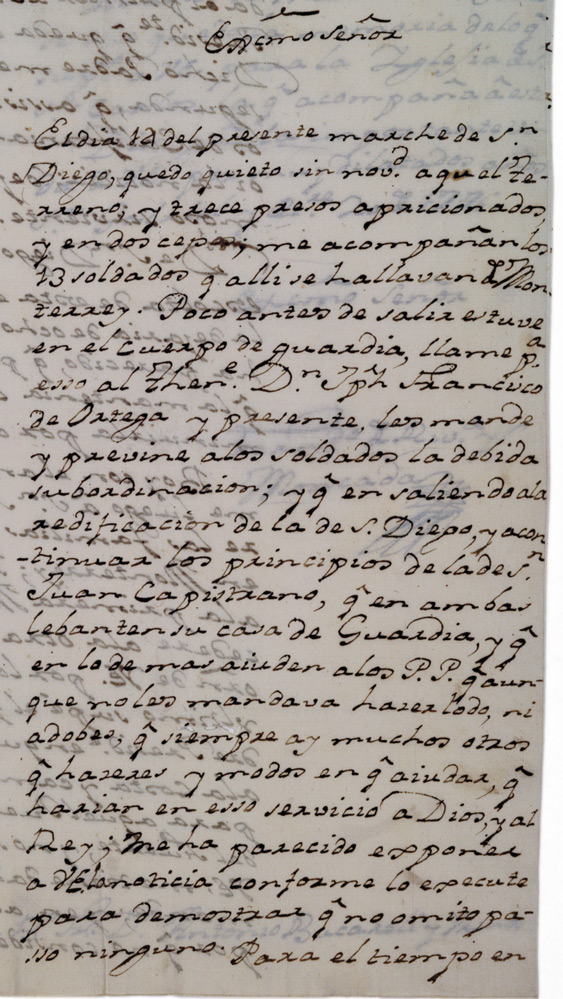 Exc̃mo señor
El dia 12 del presente marche de S.n
Diego, quedo quieto sin nov.d aquel te-
rreno; y trece presos apricionados,
y en dos cepos; me acompañan los
13 soldados q̃ alli se hallavan d Mon-
terrey. Poco antes de salir estuve
en el cuerpo de guardia, llame p.a
esso al Thene.e D.n Jph Francisco
de Ortega y presente, les mande
y previne alos soldados la debida
subordinacion; y q̃ en saliendo ala
redificacion de la de S. Diego, y acon
-tinuar los principios de la de S.n
Juan Capistrano, q̃ en ambas
lebanten su casa de Guardia, y q̃
en lo de mas aiuden alos P.P. q̃ aun-
que noles mandava hazer lodo, ni
adobes, q̃ siempre ay muchos otros
q̃ hazeres y modos en q̃ aiudar, q̃
harian en esso servicio a Dios, y al
Rey; Me ha parecido exponer
a VE la noticia conforme lo execute
para demostrar q̃ no omito pa-
sso ninguno. Para el tiempo en